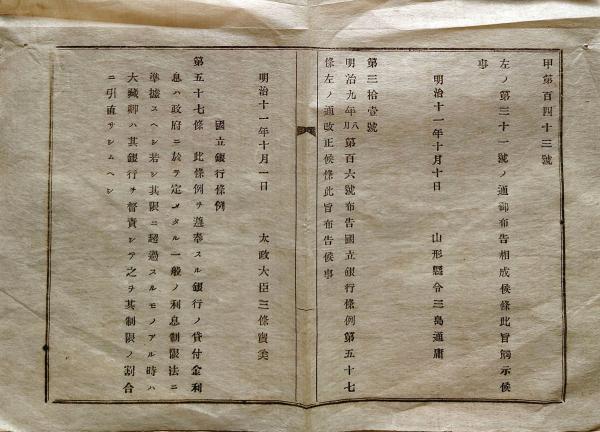 甲第百四十三號
左ノ第三十一號ノ通御布告相成候條此旨觸示候
事
明治十一年十月十日　山形縣令三島通庸
第三拾壹號
明治九年八月第百六號布告國立銀行條例第五十七
條左ノ通改正候條此旨布告候事
明治十一年十月一日　太政大臣三條實美
國立銀行條例
第五十七條　此條例ヲ遵奉スル銀行ノ貸付金利
息ハ政府ニ於テ定メタル一般ノ利息制限法ニ
準據スヘシ若シ其限ニ超過スルモノアル時ハ
大藏卿ハ其銀行ヲ督責シテ之ヲ其制限ノ割合
ニ引直サシムヘシ